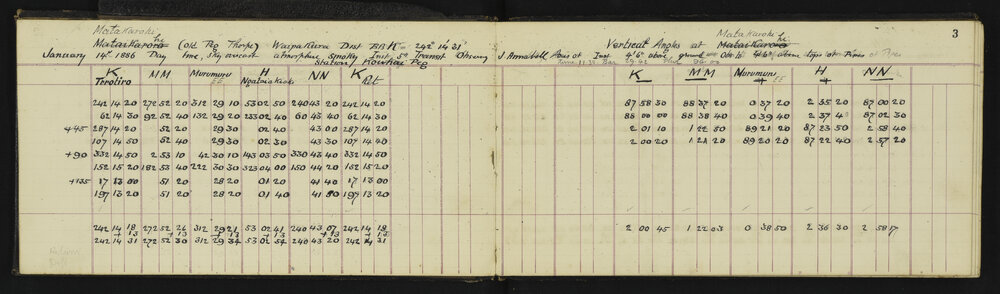 Matakarohi
hi
Matakarora (Old Peg Thorpe) Waipakura Dist Bll K = 242° 14' 31"
January 14th 1886 Day fine, sky overcast atmosphere smoky Inst 5in Transit Observg
Station Kowhai Peg
K MM Murumuru H NN K
Terotiro EE Ngataierkiaki Rpt
242 14 20 272 52 20 312 29 10 53 02 50 240 43 20 242 14 20
62 14 30 92 52 40 132 29 20 233 02 40 60 43 40 62 14 30
+45 287 14 20 52 20 29 30 02 40 43 00 287 14 20
107 14 50 52 40 29 30 02 30 43 30 107 14 40
+90 332 14 50 2 53 10 42 30 10 143 03 50 330 43 40 332 14 50
152 15 20 182 53 40 222 30 30 323 04 00 150 44 20 152 15 20
+135 17 13 00 51 20 28 20 01 20 41 40 17 13 00
197 13 20 51 20 28 20 01 40 41 50 197 13 20
242 14 18 272 52 26 312 29 21 53 02 41 240 43 07 242 14 18
+13 +13 +13 +13
242 14 31 272 52 30 312 29 34 53 02 54 240 43 20 242 14 31
3
Matakarohi
hi
Vertical Angles at Matakarora
J Annabell Axis of Inst 4'6" above ground Obs to 4'6" above legs at Pines
K MM Murumuru H NN
87 58 30 88 37 20 0 37 20 2 35 20 87 00 20
88 00 00 88 38 40 0 39 40 2 37 4 87 02 30
2 01 10 1 22 50 89 21 20 87 23 50 2 58 40
2 00 20 1 21 20 89 20 20 87 22 40 2 57 20
2 00 45 1 22 03 0 38 50 2 36 30 2 58 17